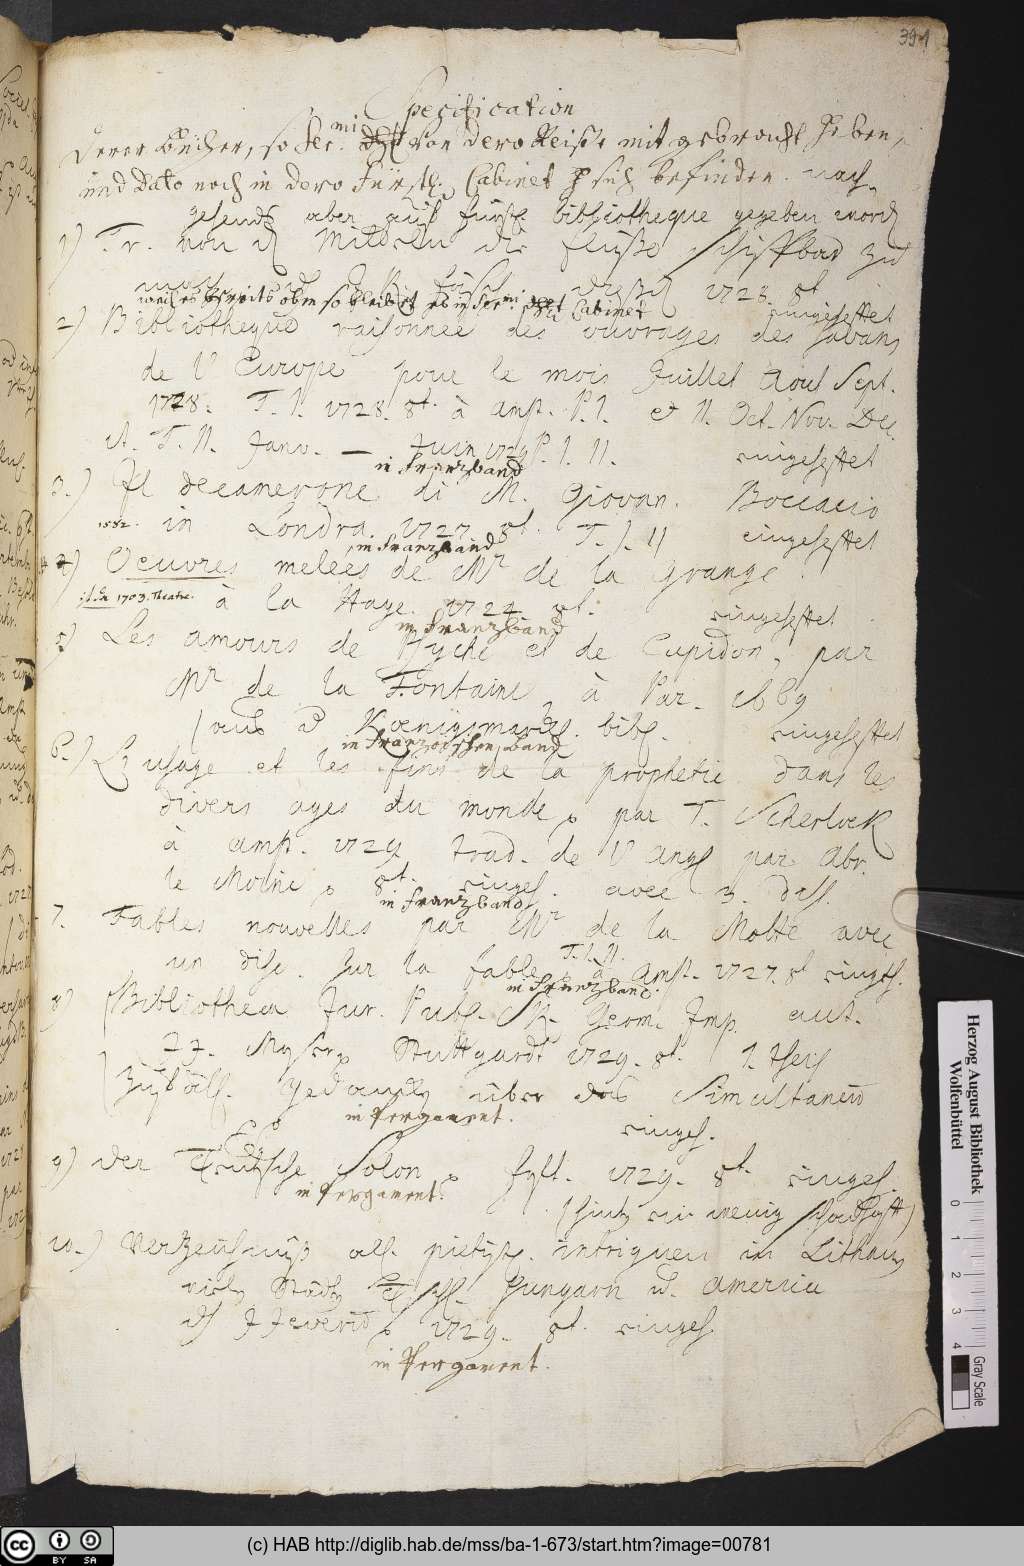 391
Specification
derer Bücher, so Ser.mi von dero Reiße mitgebracht haben,
und dato noch in dero Fürstl. Cabinet sich befinden. nach-
gehends aber auf fürstl. bibliotheque gegeben word
1) Tr. von Mitteln die Flüße Schiffbar zu
1728. 8t.
welches bereits oben so bleibet es in Ser.mi Cabinet
eingehefftet
2) Bibliotheque raisonnée des ouvrages des savans
de l'Europe pour le mois Juillet Aout Sept.
1728. T. I. 1728. 8t. à Amst. P. I. et II. Oct. Nov. Dec.
it. T. II. Janv. — Juin 1729 P. I. II. eingehefftet
in Franzband
3.) Il decamerone di M. Giovan. Boccacio
1582. in Londra. 1727. 8t. T. I. II eingehefftet
in Franzband
4) Oeuvres melées de Mr de la Grange.
1703. Theatre. à la Haye. 1724 8t. eingehefftet
in Franzband
5) Les amours de Psyche et de Cupidon, par
Mr de la Fontaine, à Par. 1669
(aus d Kœnigsmarck. bibl. eingehefftet
in Französchen band
6.) L'usage et les fins de la prophetie dans les
divers ages du monde, par T. Scherlock
à Amst. 1729 trad. de l'Angl par Abr.
le Moine, 8t. eingeh. avec 3. diss.
in Franzband
7. Fables nouvelles par Mr de la Motte avec
un disc. sur la fable, T. I. II. à Amst. 1727. 8t eingeh.
in Franzband.
8) Bibliotheca Jur. Publ. Germ. Imp. aut.
J. J. Moser, Stuttgardt 1729. 8t. 1. theil
gedancken über das Simultaneum
in Pergament.
eingeh.
9) Der Teutsche Solon, 1729. 8t. eingeh.
in Pergament.
(hinten ein wenig schadhafft)
10.) Verzeichnüß all. pietist. intriguen in Lithauen
Städten Hungarn u. America
1729. 8t. eingeh.
in Pergament.
Herzog August Bibliothek
Wolfenbüttel
0 1 2 3 4
Gray Scale
cc BY SA
(c) HAB http://diglib.hab.de/mss/ba-1-673/start.htm?image=00781